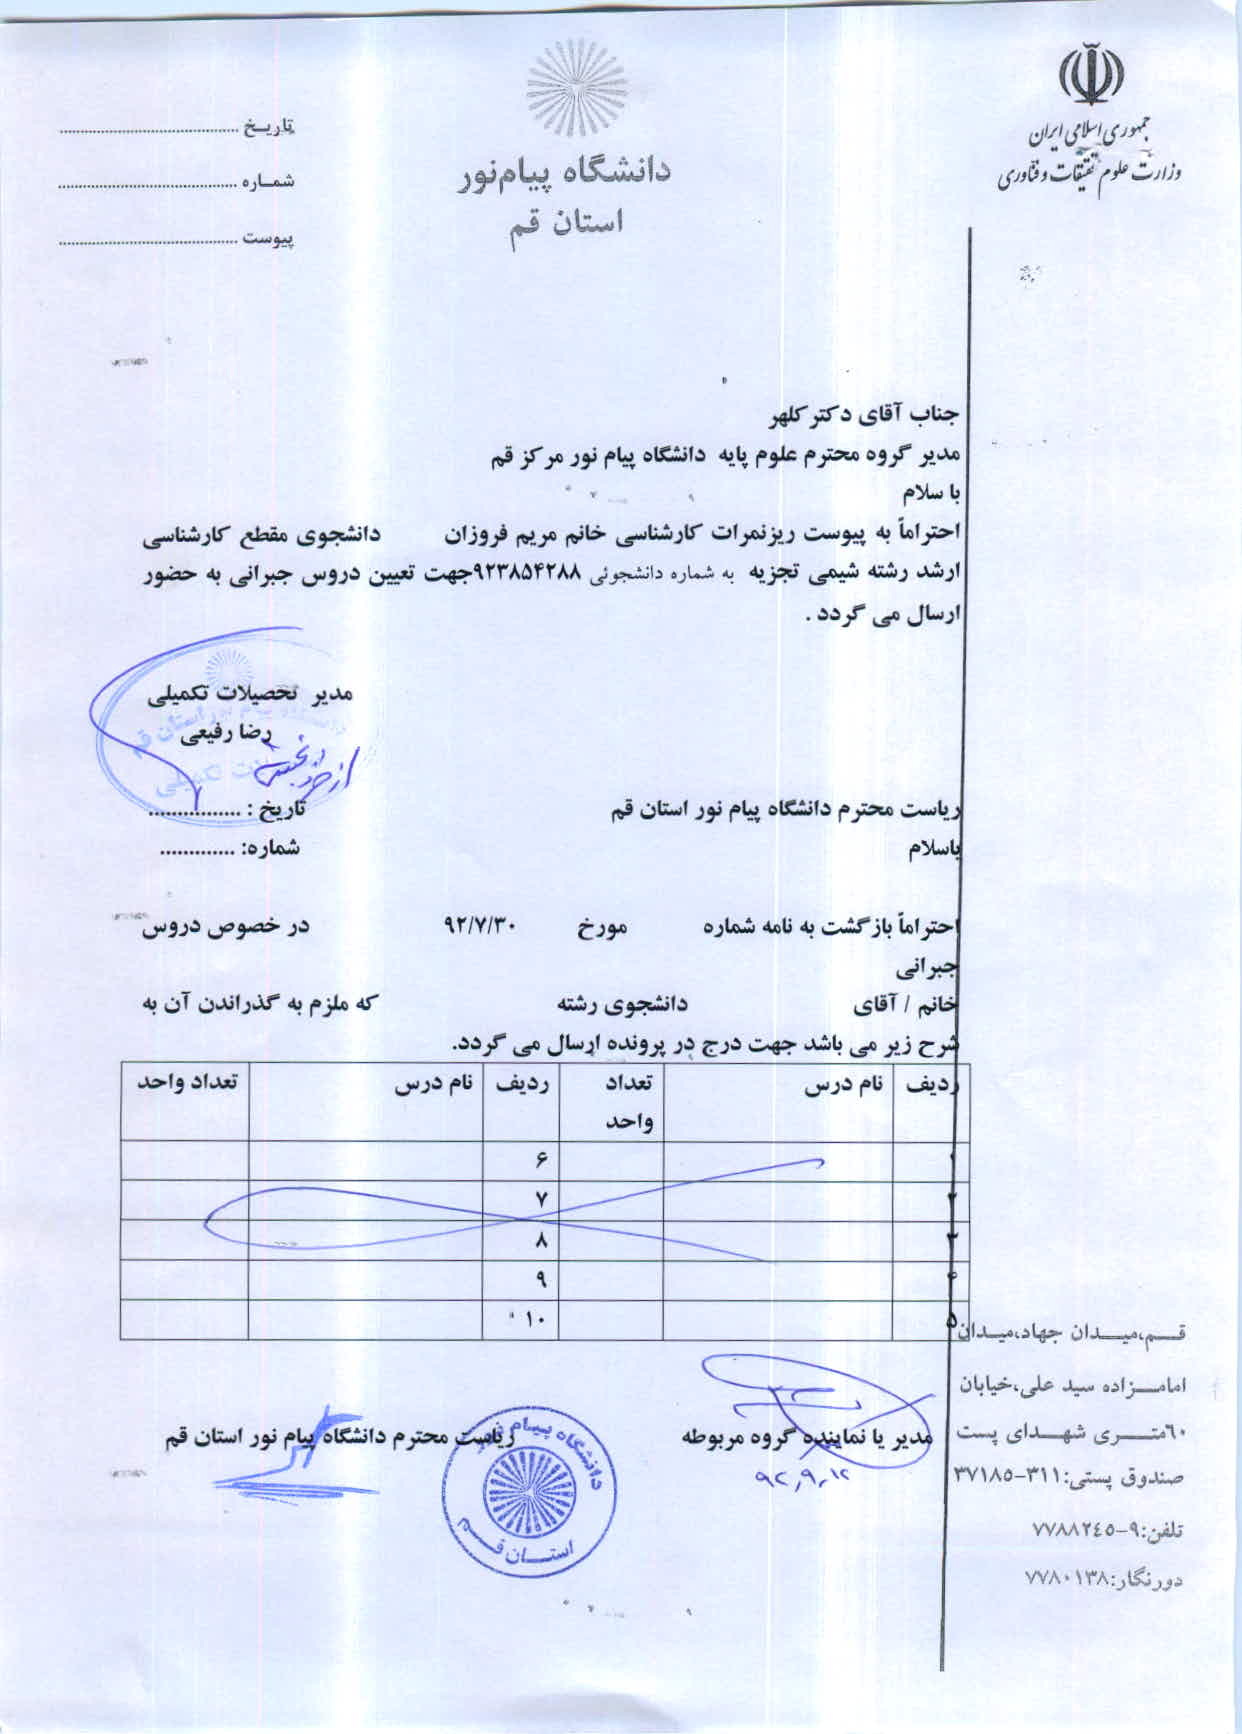 جمهوری اسلامی ایران
وزارت علوم تحقیقات و فناوری
دانشگاه پیام‌نور
استان قم
تاریـخ ........................................
شمـاره ........................................
پیوست ........................................
جناب آقای دکتر کلهر
مدیر گروه محترم علوم پایه دانشگاه پیام نور مرکز قم
با سلام
احتراماً به پیوست ریزنمرات کارشناسی خانم مریم فروزان دانشجوی مقطع کارشناسی
ارشد رشته شیمی تجزیه به شماره دانشجوئی ۹۲۳۸۵۴۲۸۸جهت تعیین دروس جبرانی به حضور
ارسال می گردد .
مدیر تحصیلات تکمیلی
رضا رفیعی
ریاست محترم دانشگاه پیام نور استان قم
تاریخ : ................
باسلام
شماره: .............
احتراماً بازگشت به نامه شماره مورخ ۹۲/۷/۳۰ در خصوص دروس
جبرانی
خانم / آقای دانشجوی رشته که ملزم به گذراندن آن به
شرح زیر می باشد جهت درج در پرونده ارسال می گردد.
ردیف نام درس تعداد واحد ردیف نام درس تعداد واحد
۱ ۶
۲ ۷
۳ ۸
۴ ۹
۵ ۱۰
مدیر یا نماینده گروه مربوطه
۹۲,۹,۱۲
ریاست محترم دانشگاه پیام نور استان قم
دانشگاه پیـام نور
استـان قـم
قـم،میـدان جهاد،میـدان
امامـزاده سید علی،خیابان
٦۰متـری شهـدای پست
صندوق پستی:۳۱۱-۳۷۱۸۵
تلفن:۹-۷۷۸۸۲٤٥
دورنگار:۷۷۸۰۱۳۸